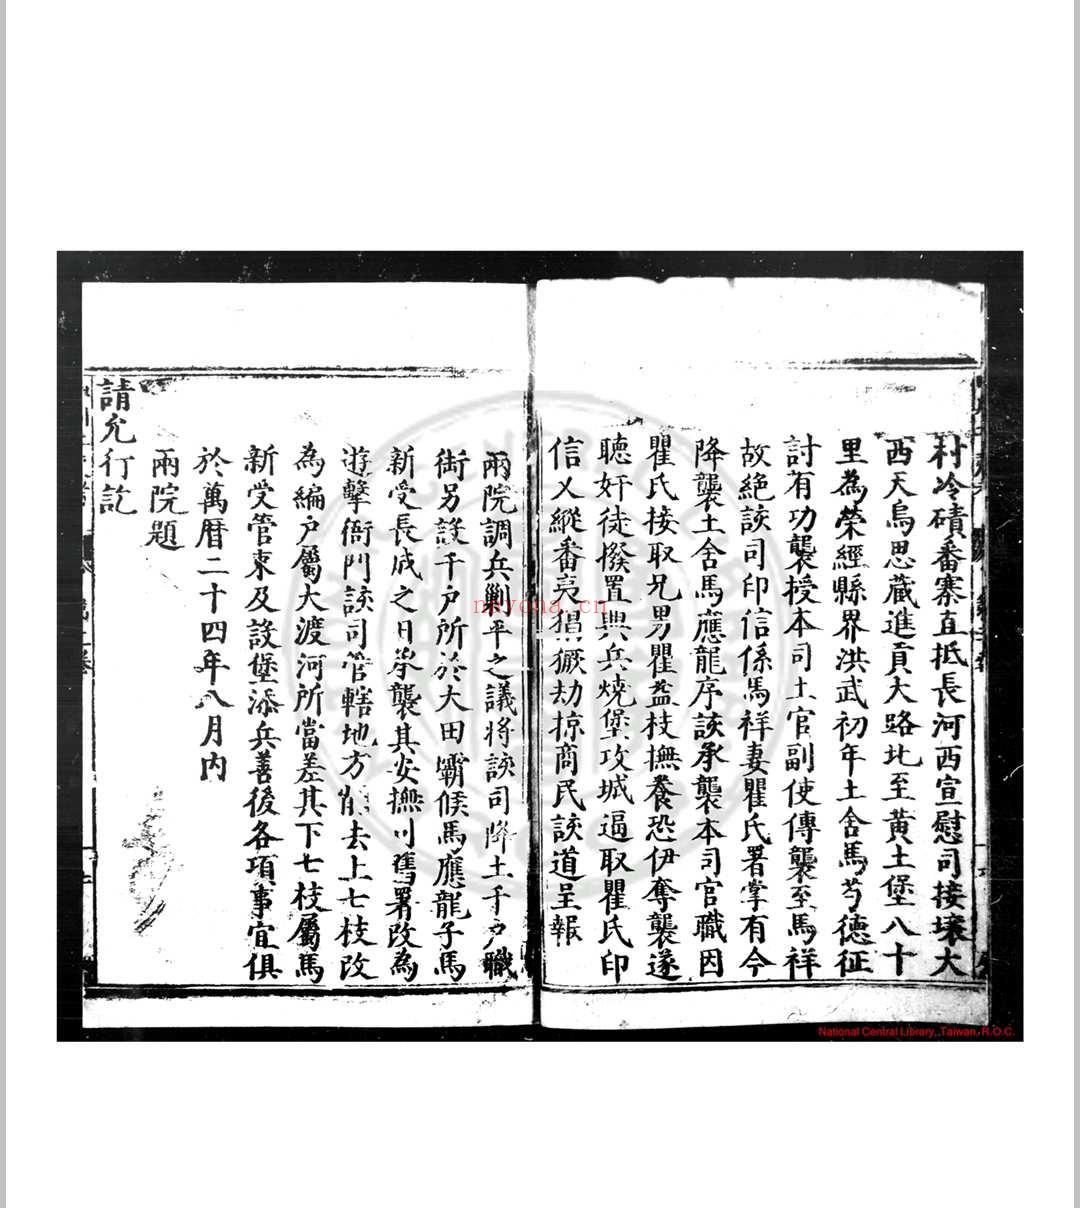 村冷磧番寨直抵長河西宣慰司接壤大
西天烏思藏進貢大路北至黃土堡八十
里為榮經縣界洪武初年土舍馬芍德征
討有功襲授本司土官副使傳襲至馬祥
故絶該司印信係馬祥妻瞿氏署掌有今
降襲土舍馬應龍序該承襲本司官職因
瞿氏接取兄男瞿益枝撫養恐伊奪襲遂
聽奸徒撥置興兵燒堡攻城逼取瞿氏印
信乂縱番夷猖獗劫掠商民該道呈報
兩院調兵勦平之議將該司降土千户職
銜另設千户所於大田壩候馬應龍子馬
新受長成之日承襲其安撫司舊署改為
遊擊衙門該司管轄地方除去上七枝改
為編户屬大渡河所當差其下七枝屬馬
新受管束及設堡添兵善後各項事宜俱
於萬曆二十四年八月內
兩院題
請允行訖
nayona.cn
National Central Library, Taiwan, R.O.C.